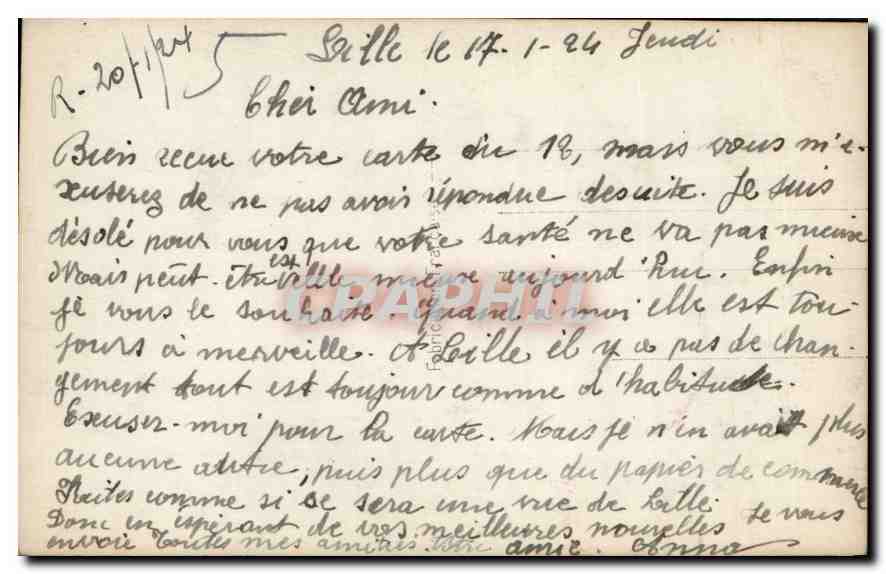 R. 20/1/24 5
Lille le 17-1-24 Jeudi
Cher Ami.
Bien recue votre carte du 12, mais vous m'e-
xuserez de ne pas avoir répondue desuite. Je suis
désolé pour vous que votre santé ne va pas mieuxe
Mais peut-être est elle mieuxe aujourd'hui. Enfin
je vous le souhaite. Quand à moi elle est tou-
jours à merveille. A Lille il y a pas de chan-
gement tout est toujour comme d'habitude.
Exuser-moi pour la carte. Mais je n'en avait plus
aucune autre, puis plus que du papier de commerce
Faites comme si ce sera une vue de Lille.
Donc en espérant de vos meilleures nouvelles Je vous
envoie toutes mes amitiés. Votre amie. Anna
CPAPHIL
Fabrication Française